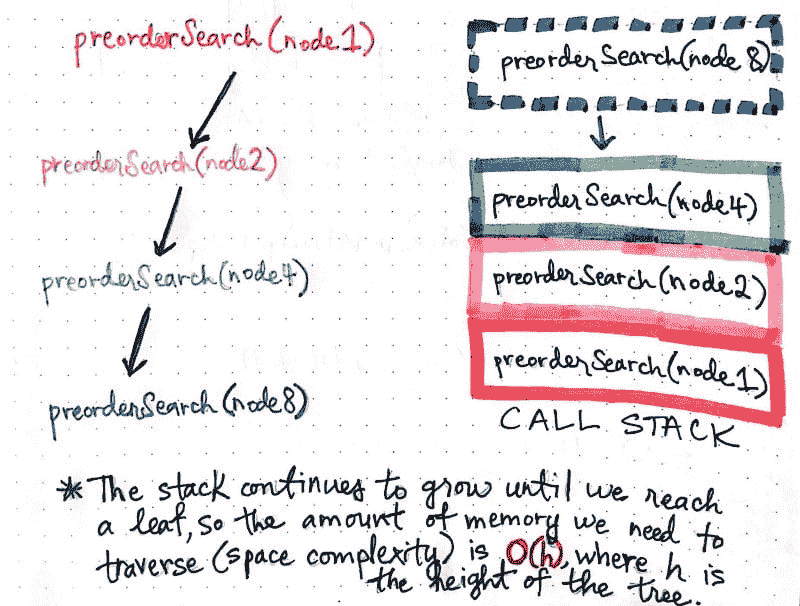 preorderSearch(node1)
preorderSearch(node2)
preorderSearch(node4)
preorderSearch(node8)
preorderSearch(node8)
preorderSearch(node4)
preorderSearch(node2)
preorderSearch(node1)
CALL STACK
* The stack continues to grow until we reach
a leaf, so the amount of memory we need to
traverse (space complexity) is O(h), where h is
the height of the tree.